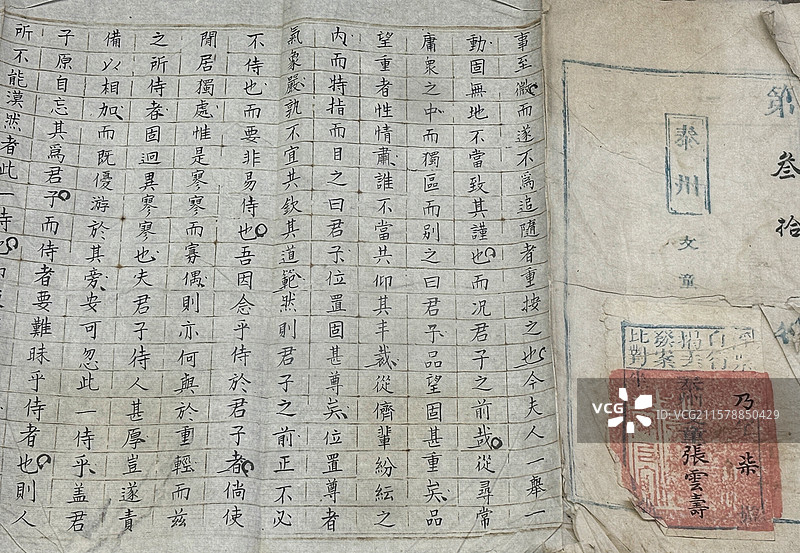 第叁拾
泰州
文童
乃柒
張雲壽
事至微而遂不爲追隨者重按之也今夫人一舉一
動固無地不當致其謹也而况君子之前哉從尋常
庸衆之中而獨區而别之曰君子品望固甚重矣品
望重者性情肅誰不當共仰其丰裁從儕輩紛紜之
内而特指而目之曰君子位置固甚尊矣位置尊者
氣象嚴孰不宜共欽其道範然則君子之前正不必
不侍也而要非易侍也吾因念乎侍於君子者倘使
閒居獨處惟是寥寥而寡偶則亦何與於重輕而茲
之所侍者固迥異寥寥也夫君子待人甚厚豈遂責
備以相加而既優游於其旁安可忽此一侍乎蓋君
子原自忘其爲君子而侍者要難昧乎侍者也則人
所不能漠然者此一侍也
VCG
VCG211578850429